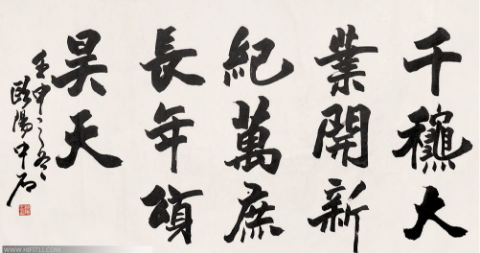 千龝大
業開新
紀萬庶
長年頌
昊天
壬申之
歐陽中石